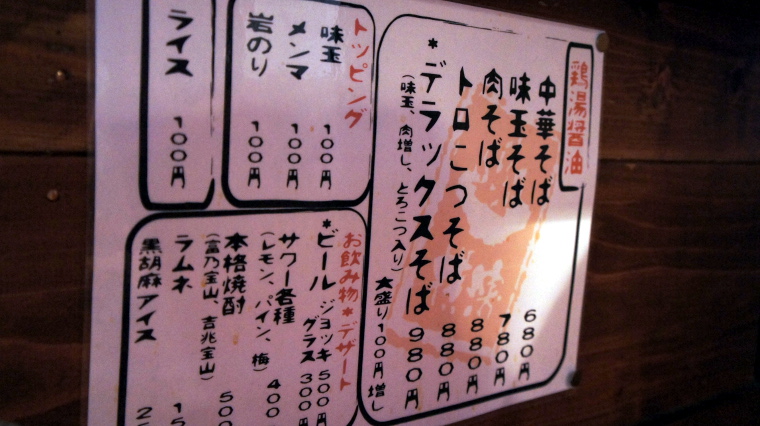 鶏湯醤油
中華そば 680円
味玉そば 780円
肉そば 880円
トロこつそば 880円
*デラックスそば 980円
(味玉、肉増し、とろこつ入り)
大盛り100円増し
トッピング
味玉 100円
メンマ 100円
岩のり 100円
ライス 100円
お飲み物*デザート
*ビール ジョッキ 500円
グラス 300円
サワー各種 400
(レモン、パイン、梅)
本格焼酎 500
(富乃宝山、吉兆宝山)
ラムネ 15
黒胡麻アイス 2